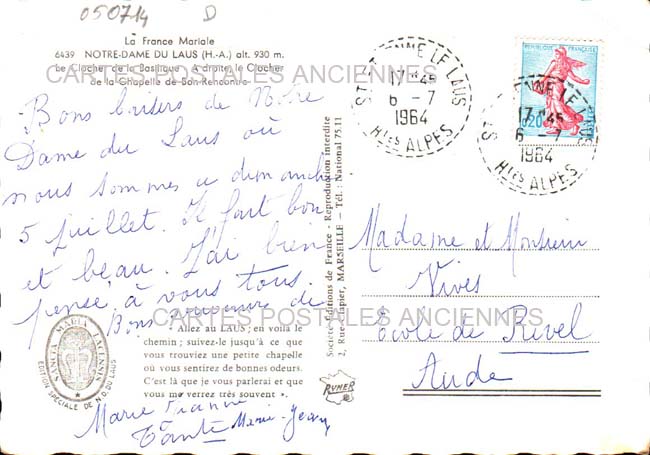 050714 D
La France Mariale
6439 NOTRE-DAME DU LAUS (H.-A.) alt. 930 m.
Le Clocher de la Basilique - A droite, le Clocher
de la Chapelle de Bon-Rencontre
CARTES POSTALES ANCIENNES
Bons baisers de Notre
Dame du Laus où
nous sommes ce dimanche
5 juillet. Il fait bon
et beau. J'ai bien
pensé à vous tous.
Bons souvenirs de
SANCTA MARIA LACENSIS
EDITION SPÉCIALE DE N.D. DU LAUS
" Allez au LAUS ; en voilà le
chemin ; suivez-le jusqu'à ce que
vous trouviez une petite chapelle
où vous sentirez de bonnes odeurs.
C'est là que je vous parlerai et que
vous me verrez très souvent ».
Marie
Tante Marie-Jean
Société Editions de France - Reproduction interdite
MARSEILLE - Tél. : National 75.11
RUMER
ST ETIENNE LE LAUS
17 H 45
6 - 7
1964
Htes ALPES
REPUBLIQUE FRANÇAISE
0,20
POSTES
ST ETIENNE LE LAUS
17 H 45
6 - 7
1964
Htes ALPES
Madame et Monsieur
Vives
Ecole de Revel
Aude
CARTES POSTALES ANCIENNES